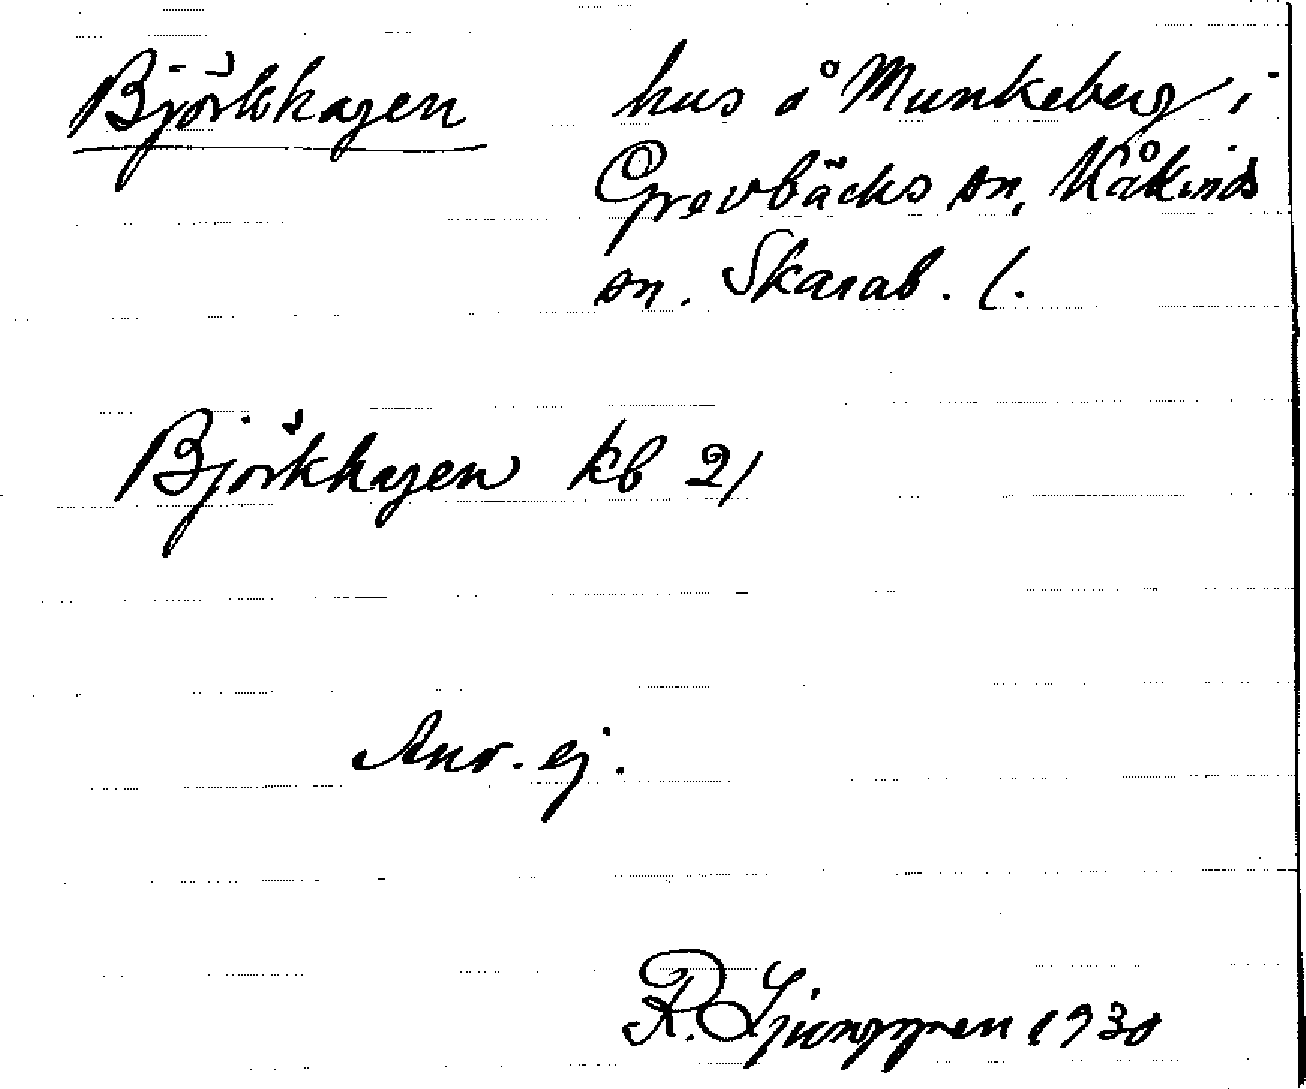 Björkhagen hus å Munkeberg i
Grevbäcks sn, Kåkinds
sn. Skarab. l.
Björkhagen kb 21
Anv. ej.
R. Ljunggren 1930